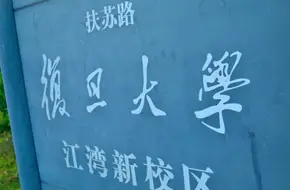 扶苏路
復旦大學
江湾新校区